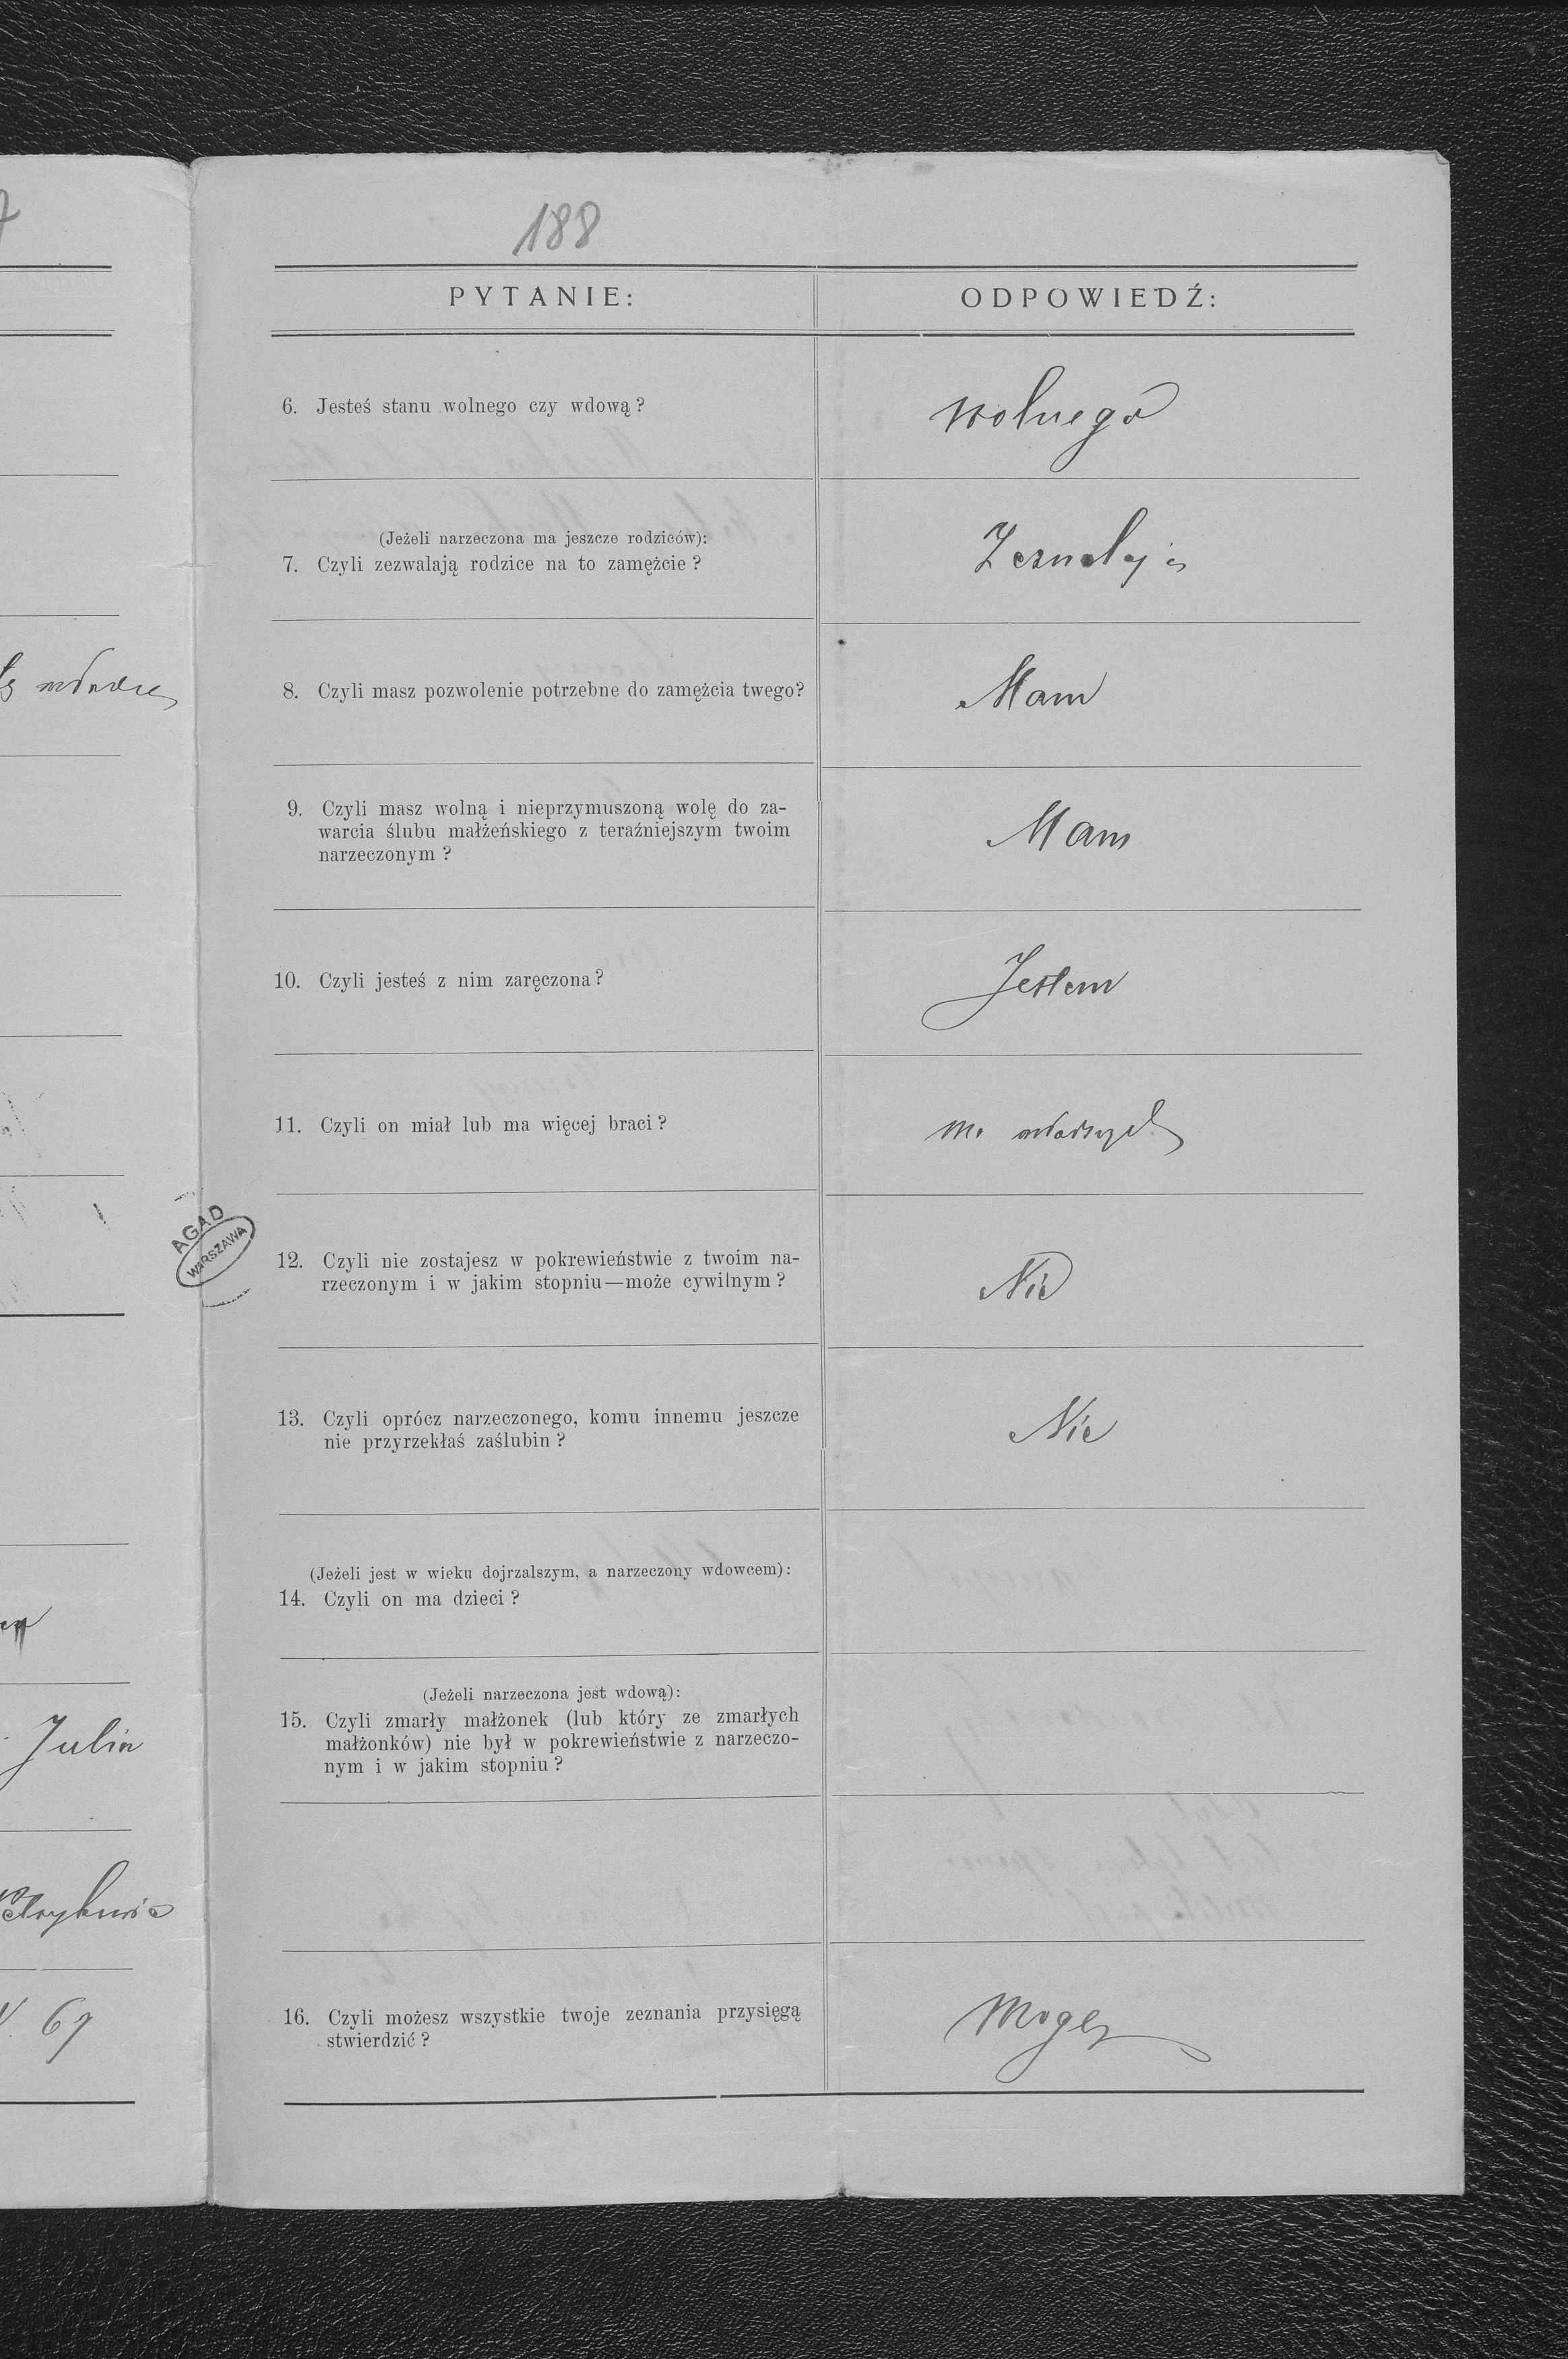 188
PYTANIE:
ODPOWIEDŹ:
6. Jesteś stanu wolnego czy wdową?
wolnego
(Jeżeli narzeczona ma jeszcze rodziców):
7. Czyli zezwalają rodzice na to zamężcie?
8. Czyli masz pozwolenie potrzebne do zamężcia twego?
Mam
9. Czyli masz wolną i nieprzymuszoną wolę do za-
warcia ślubu małżeńskiego z teraźniejszym twoim
narzeczonym?
Mam
10. Czyli jesteś z nim zaręczona?
Jestem
11. Czyli on miał lub ma więcej braci?
12. Czyli nie zostajesz w pokrewieństwie z twoim na-
rzeczonym i w jakim stopniu—może cywilnym?
Nie
13. Czyli oprócz narzeczonego, komu innemu jeszcze
nie przyrzekłaś zaślubin?
Nie
(Jeżeli jest w wieku dojrzalszym, a narzeczony wdowcem):
14. Czyli on ma dzieci?
(Jeżeli narzeczona jest wdową):
15. Czyli zmarły małżonek (lub który ze zmarłych
małżonków) nie był w pokrewieństwie z narzeczo-
nym i w jakim stopniu?
16. Czyli możesz wszystkie twoje zeznania przysięgą
stwierdzić?
Mogę
AGAD
WARSZAWA
Julia
67